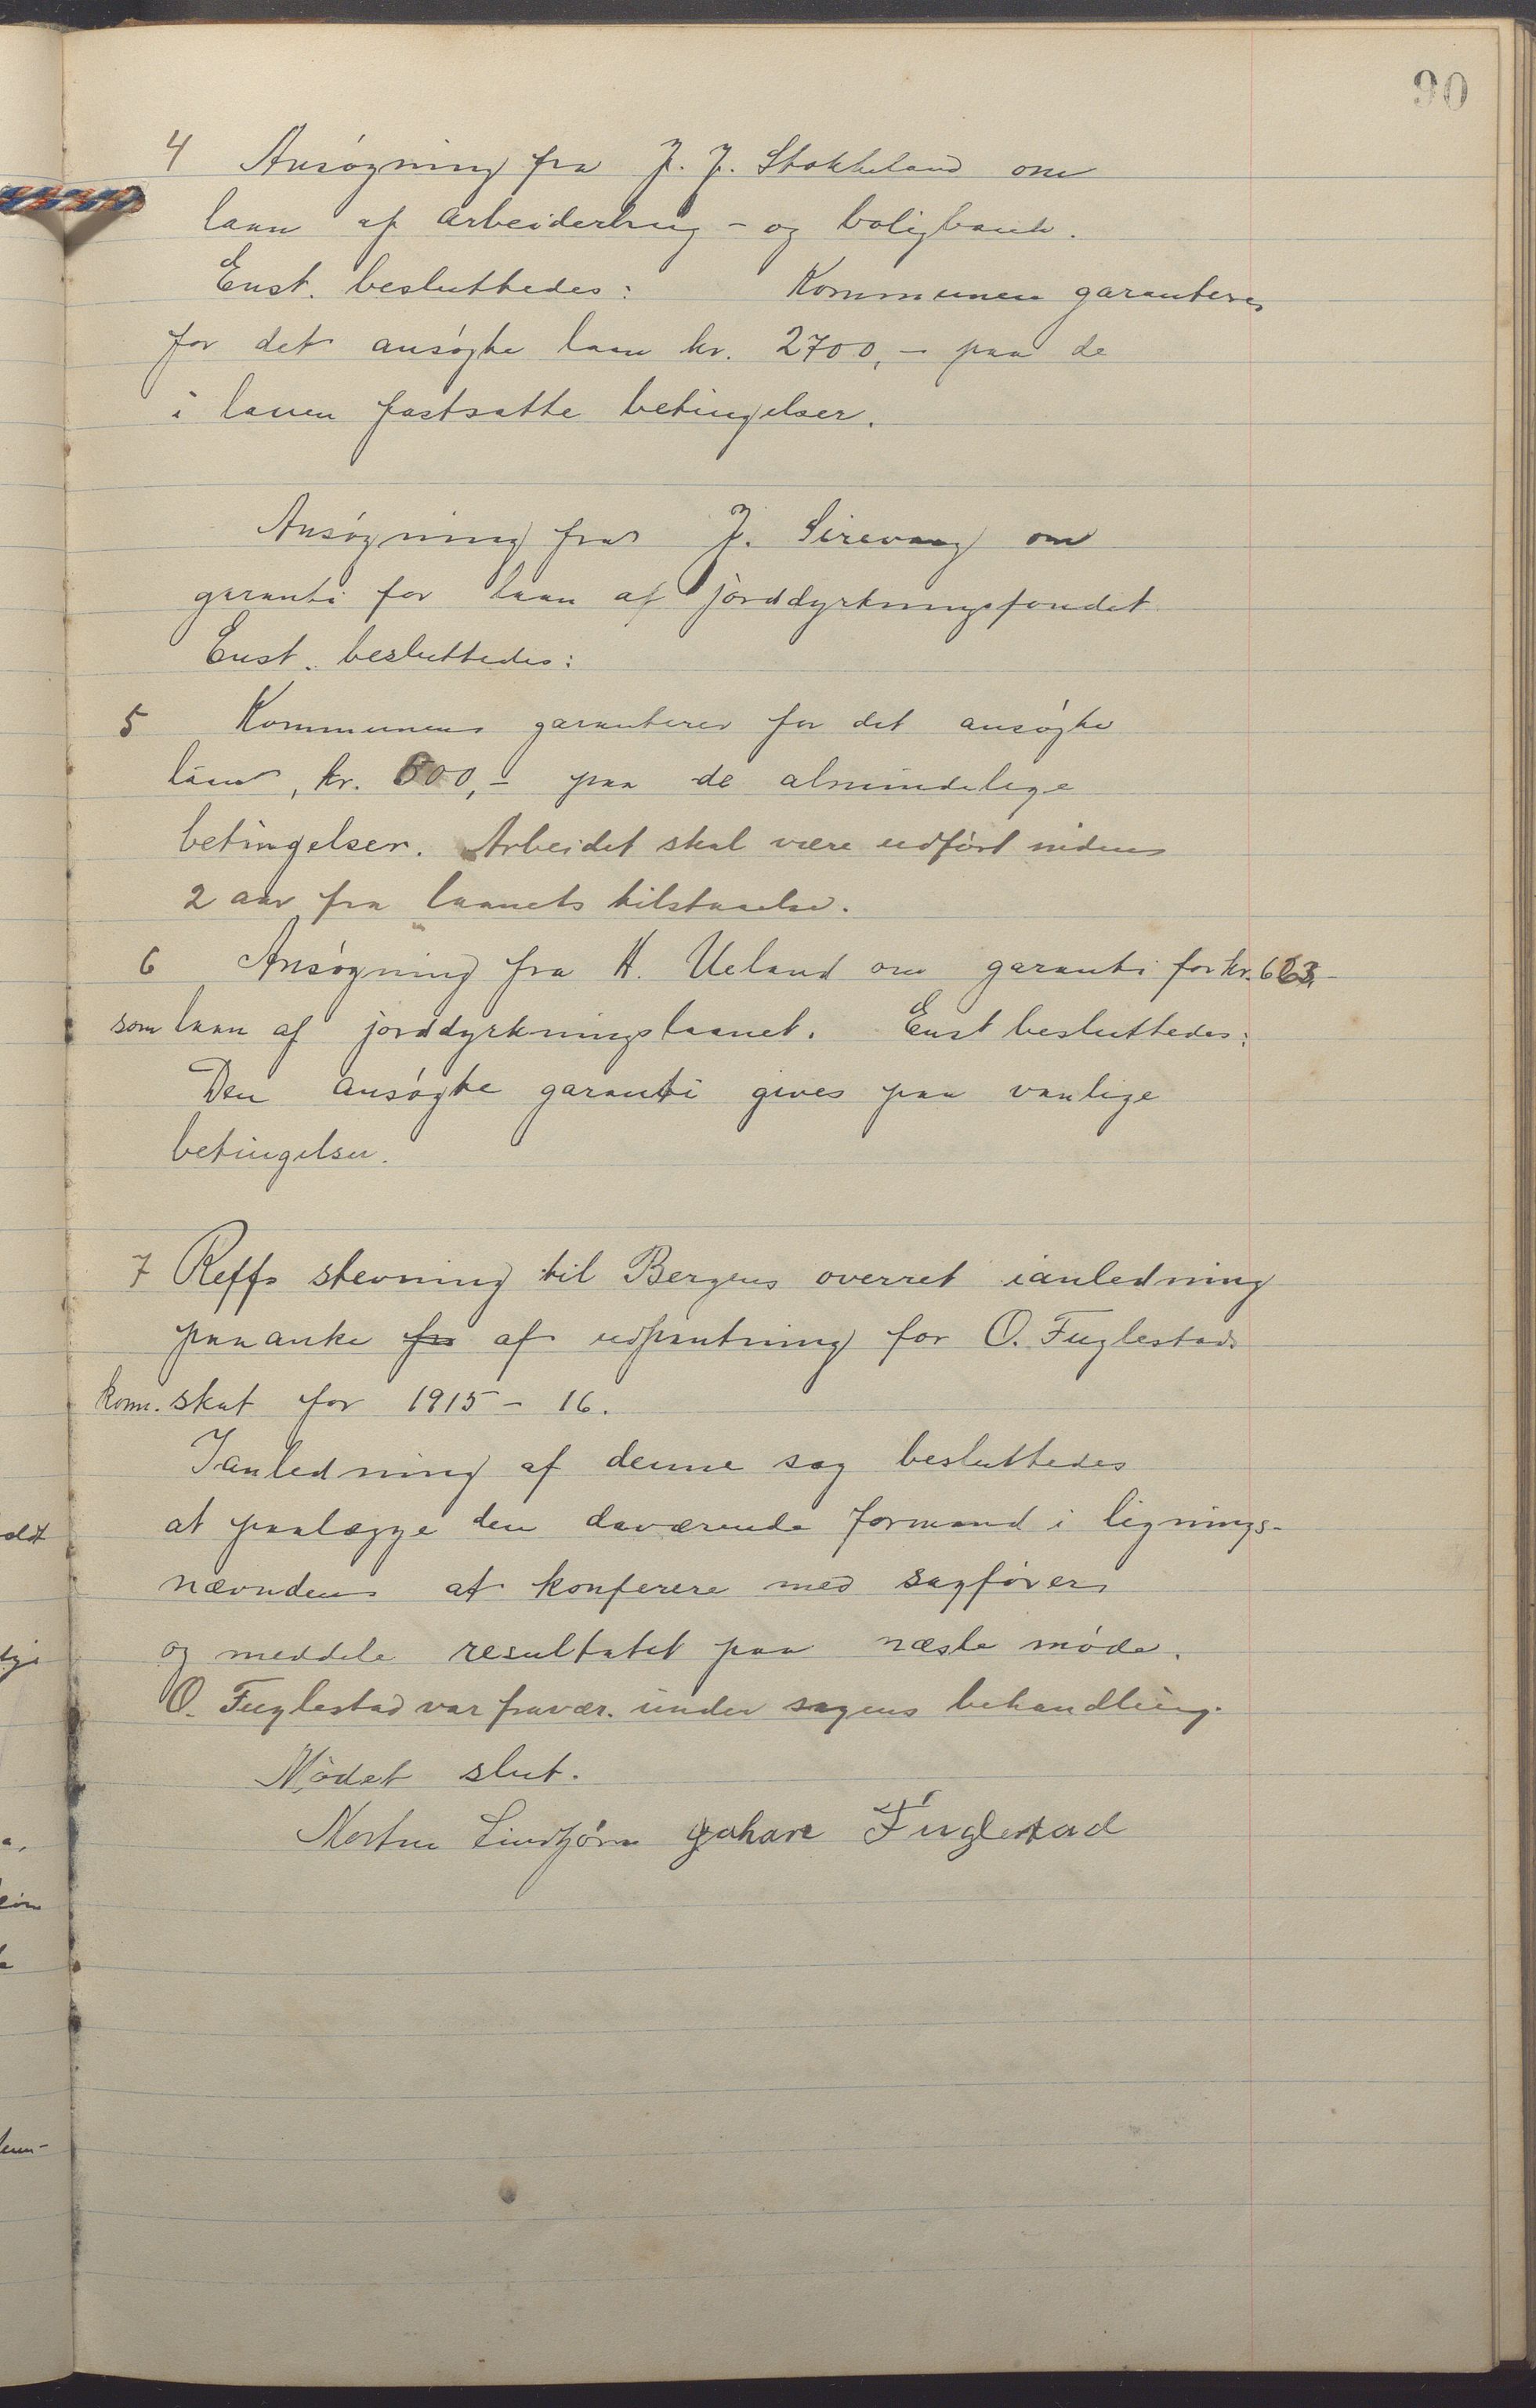 90
4 Ansøgning fra J. J. Stokkeland om
laan af arbeiderbrug- og boligbank.
Enst. besluttedes: Kommunen garanterer
for det ansøgte laan kr. 2700,- paa de
i loven fastsatte betingelser.
Ansøgning fra J. Sirevaag om
garanti for laan af jorddyrkningsfondet
Enst. besluttedes:
5 Kommunen garanterer for det ansøgte
laan, kr. 600,- paa de almindelige
betingelser. Arbeidet skal være udført inden
2 aar fra laanets tilstaaelse.
6 Ansøgning fra H. Ueland om garanti for kr. 663,-
som laan af jorddyrkningslaanet. Enst besluttedes:
Den ansøgte garanti gives paa vanlige
betingelser.
7 Reffs stevning til Bergens overret ianledning
paaanke fra af udpantning for O. Fuglestads
kom. skat for 1915-16.
Ianledning af denne sag besluttedes
at paalægge den daværende formand i lignings-
nævnden at konferere med sagfører
og meddele resultatet paa næste møde.
O. Fuglestad var fravær. under sagens behandling.
Mødet slut.
Morten Lindtjørn Johan Fuglestad